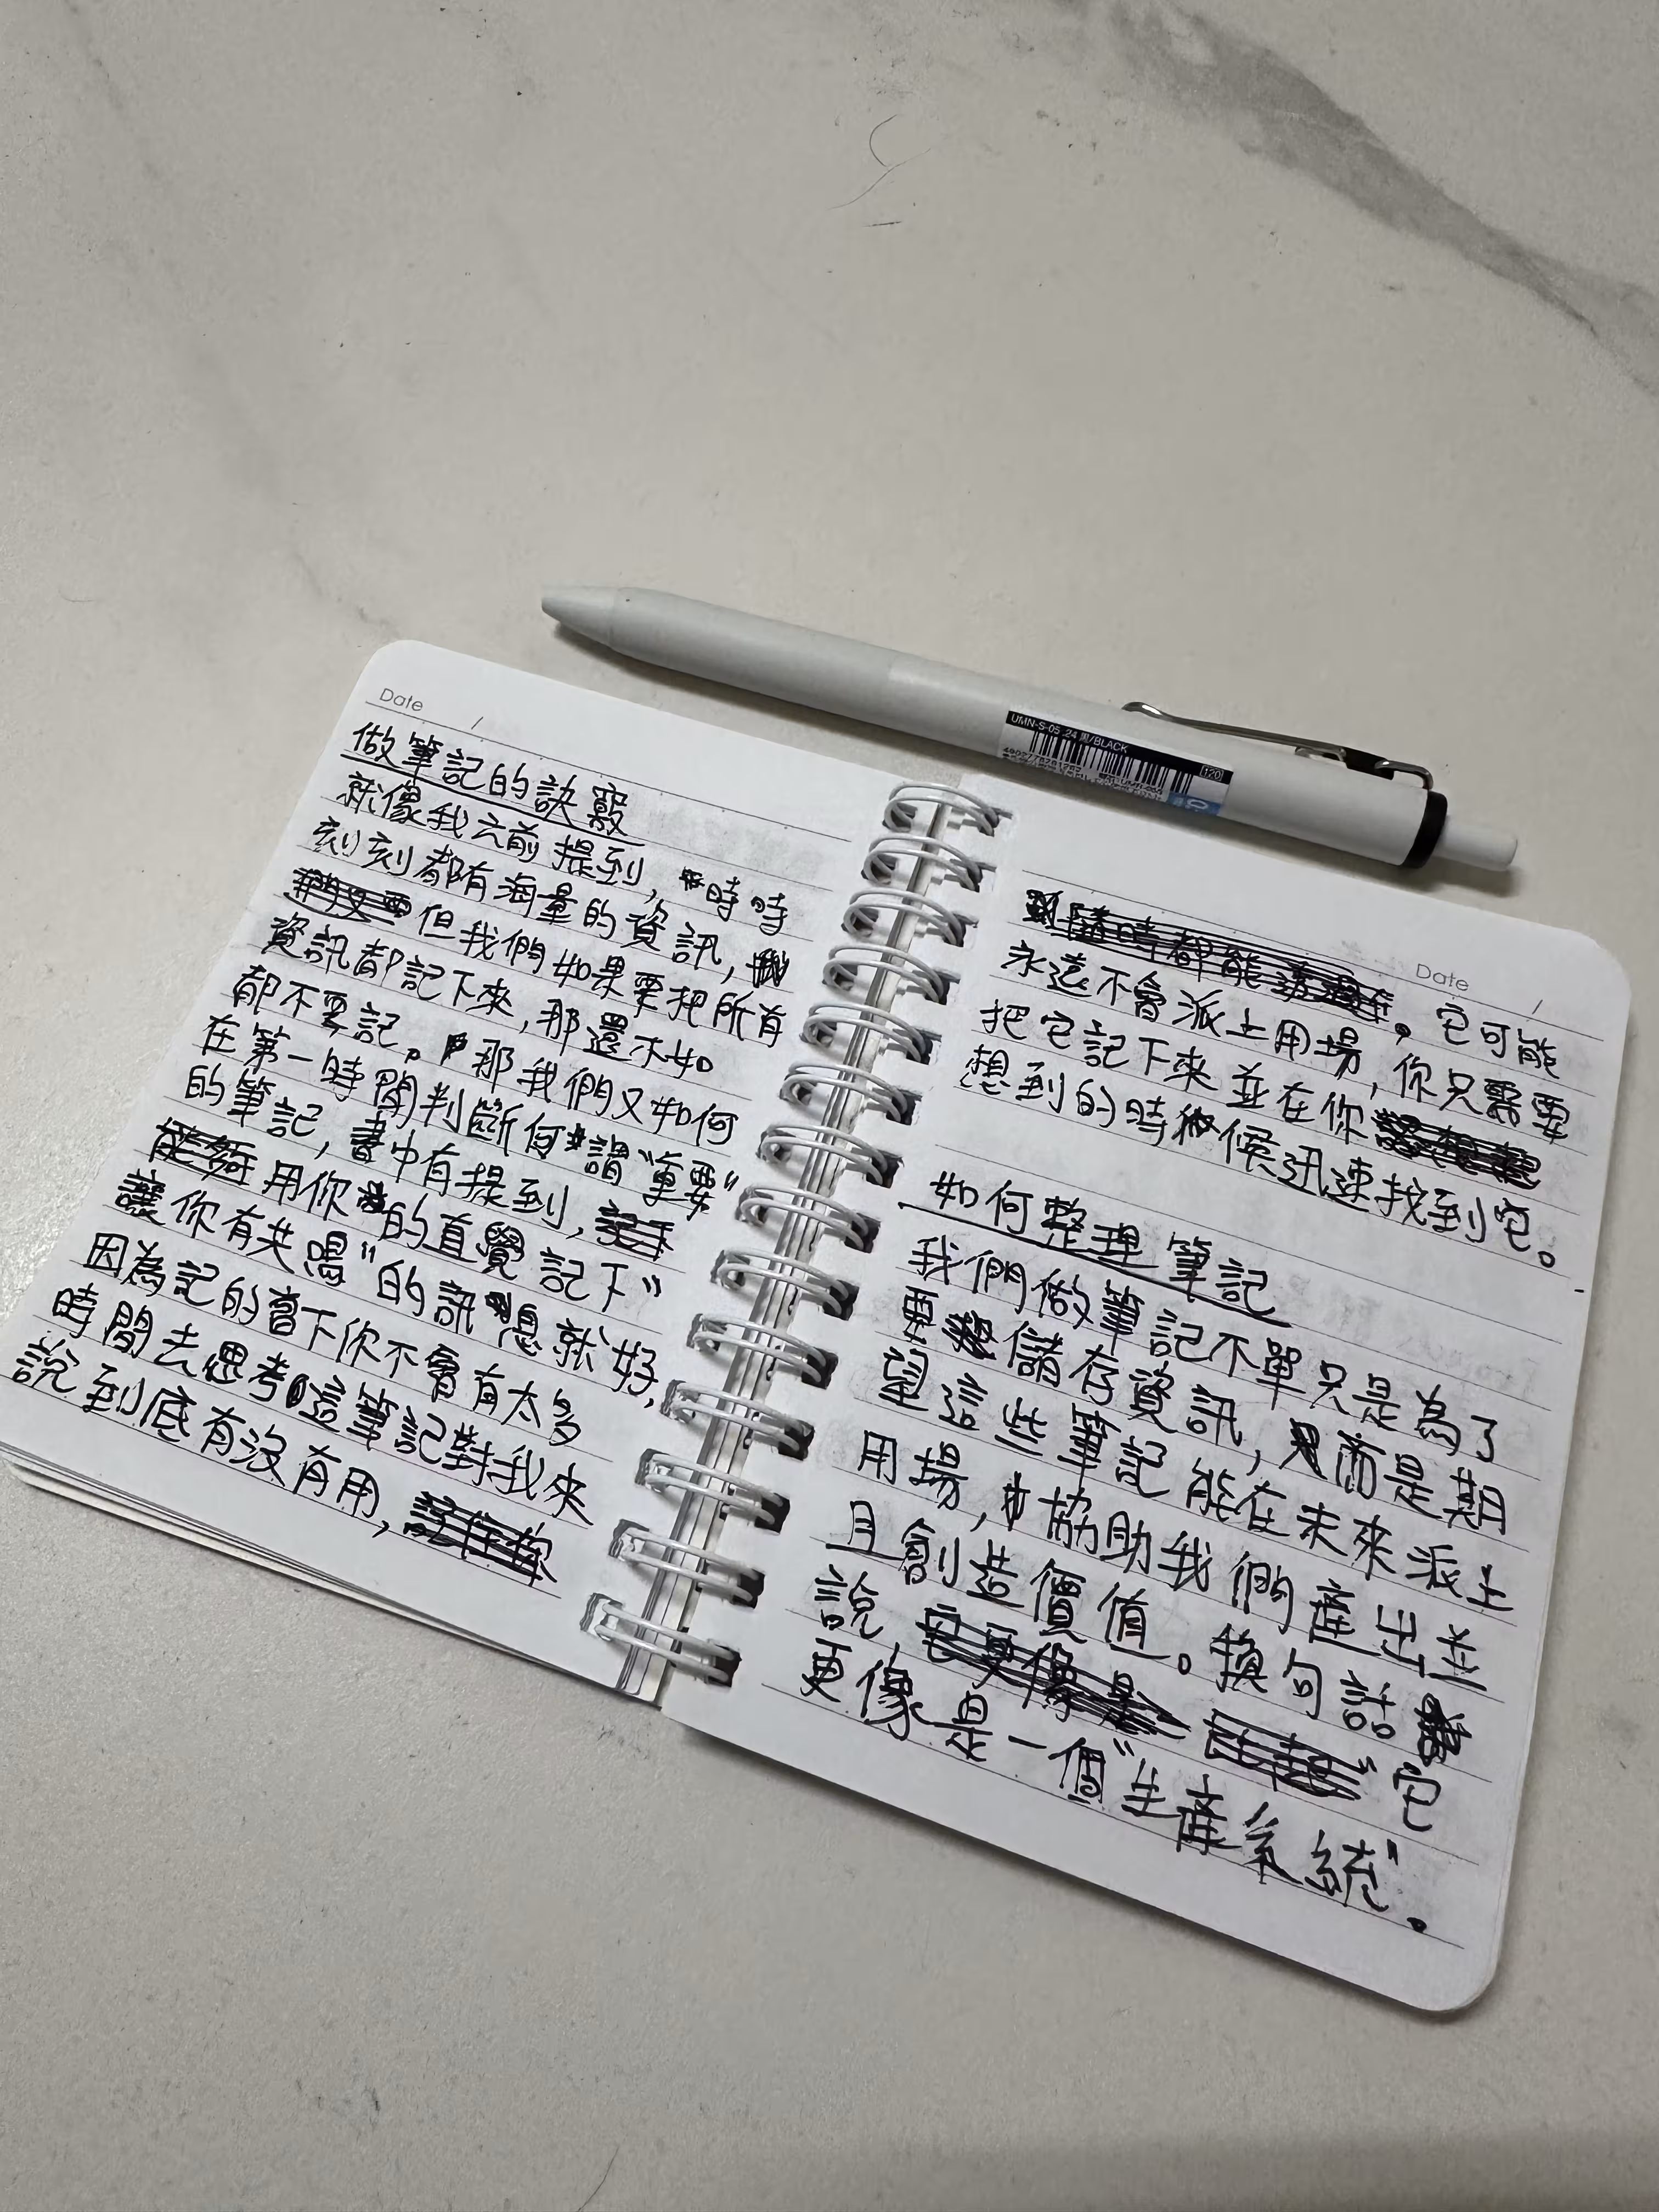 Date /
做筆記的訣竅
就像我之前提到，"時時
刻刻都有海量的資訊，
但我們如果要把所有
資訊都記下來，那還不如
都不要記。那我們又如何
在第一時間判斷何謂"重要"
的筆記，書中有提到，
能夠用你的直覺記下"
讓你有共鳴"的訊息就好，
因為記的當下你不會有太多
時間去思考這筆記對我來
說到底有沒有用，
Date /
隨時都能
。它可能
永遠不會派上用場，你只需要
把它記下來並在你
想到的時候迅速找到它。
如何整理筆記
我們做筆記不單只是為了
要儲存資訊，而是期
望這些筆記能在未來派上
用場，協助我們產出並
且創造價值。換句話
說，它更像是 它
更像是一個"生產系統"。
UMN-S-05 .24 黒/BLACK